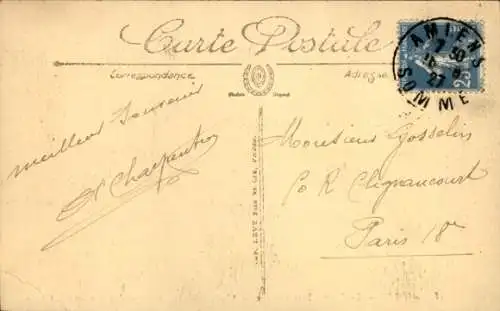 Carte Postale
Correspondance
Adresse
AMIENS
7 30
16 8
27
SOMME
25
meilleur Souvenir
Charpentier
Monsieur Gosselin
R Clignancourt
Paris 18e